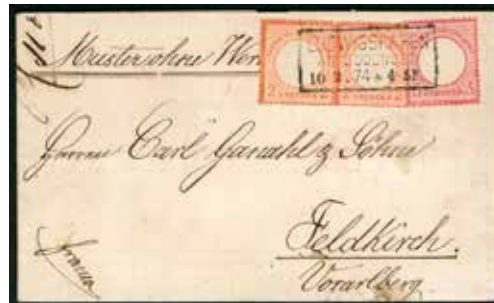 Muster ohne Wert
10 2 74 4-5N
Herren Carl Ganahl & Söhne
Feldkirch.
Vorarlberg.
franco